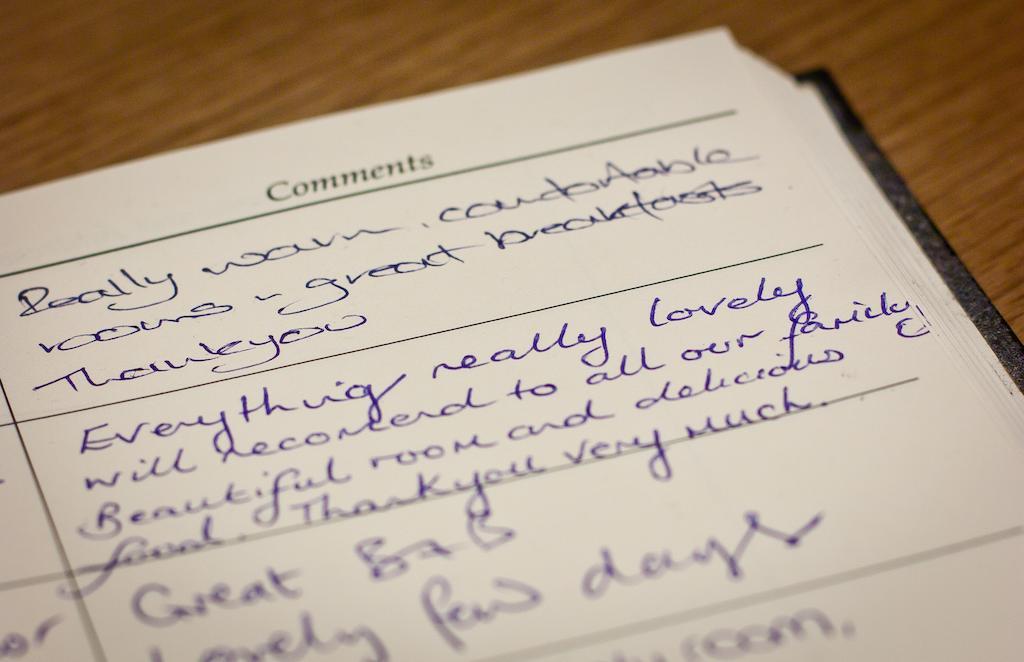 Comments
Really warm, comfortable
rooms - great breakfasts
Thankyou
Everything really lovely
will recomend to all our family
Beautiful room and delicious &
food. Thankyou very much.
Great B+B
Lovely few days
or
room.